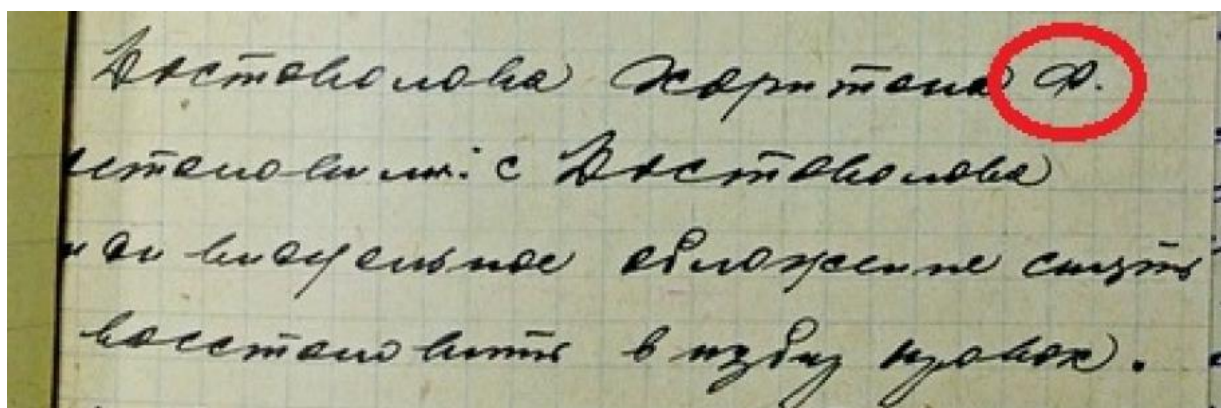 Достовалова Харитона Ф.
становили: с Достовалова
индивидуальное обложение снять
восстановить в избир правах.